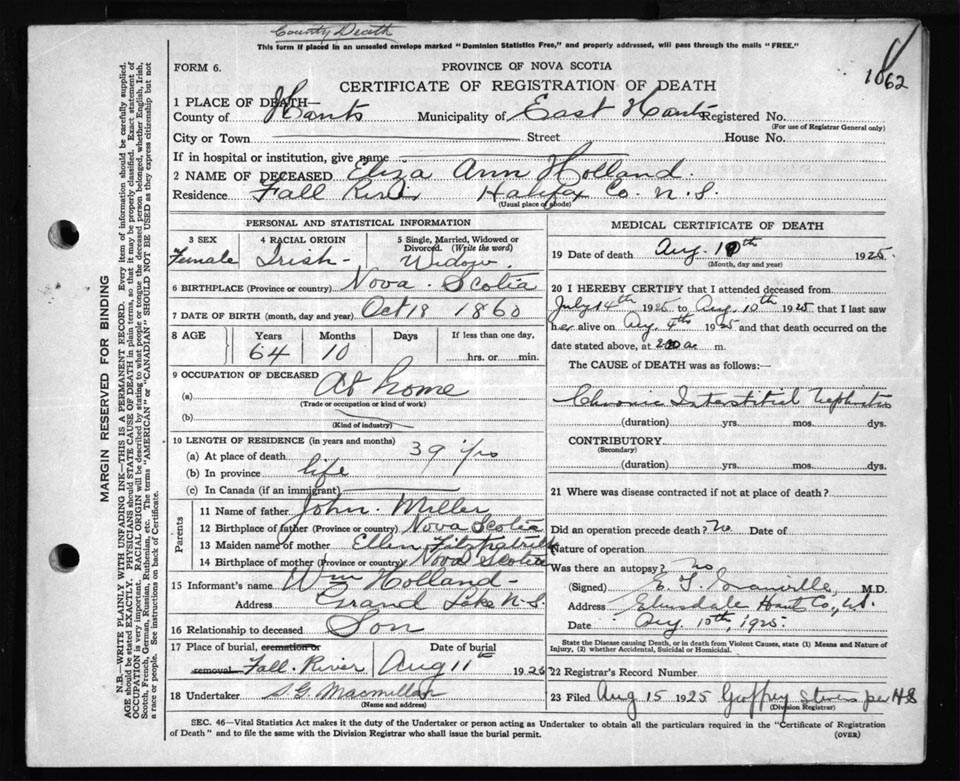 County Death
This form if placed in an unsealed envelope marked "Dominion Statistics Free," and properly addressed, will pass through the mails "FREE."
FORM 6.
PROVINCE OF NOVA SCOTIA
1862
CERTIFICATE OF REGISTRATION OF DEATH
1 PLACE OF DEATH—
County of Hants Municipality of East Hants Registered No.
(For use of Registrar General only)
City or Town Street House No.
If in hospital or institution, give name
2 NAME OF DECEASED Eliza Ann Holland.
Residence Fall River Halifax Co. N.S.
(Usual place of abode)
PERSONAL AND STATISTICAL INFORMATION
3 SEX
Female
4 RACIAL ORIGIN
Irish
5 Single, Married, Widowed or
Divorced. (Write the word)
Widow.
6 BIRTHPLACE (Province or country) Nova Scotia
7 DATE OF BIRTH (month, day and year) Oct 18 1860
8 AGE Years Months Days If less than one day,
64 10 hrs. or min.
9 OCCUPATION OF DECEASED
(a) At home
(Trade or occupation or kind of work)
(b)
(Kind of industry)
10 LENGTH OF RESIDENCE (in years and months)
(a) At place of death 39 yrs
(b) In province life
(c) In Canada (if an immigrant)
Parents
11 Name of father John Miller
12 Birthplace of father (Province or country) Nova Scotia
13 Maiden name of mother Ellen Fitzpatrick
14 Birthplace of mother (Province or country) Nova Scotia
15 Informant's name Wm Holland
Address Grand Lake N.S.
16 Relationship to deceased Son
17 Place of burial, cremation or Date of burial
removal Fall River Aug 11 1925
18 Undertaker S G Macmillan
(Name and address)
MEDICAL CERTIFICATE OF DEATH
19 Date of death Aug. 10th 1925
(Month, day and year)
20 I HEREBY CERTIFY that I attended deceased from
July 14th 1925 to Aug. 10th 1925 that I last saw
her alive on Aug 4th 1925 and that death occurred on
date stated above, at m.
The CAUSE of DEATH was as follows:—
Chronic Interstitial Nephritis
(duration) yrs. mos. dys.
CONTRIBUTORY
(Secondary)
(duration) yrs. mos. dys.
21 Where was disease contracted if not at place of death?
Did an operation precede death? No Date of
Nature of operation
Was there an autopsy? No
(Signed) E. M.D.
Address Elmsdale Hants Co,
Date Aug 10th, 1925
State the Disease causing Death, or in death from Violent Causes, state (1) Means and Nature of
Injury, (2) whether Accidental, Suicidal or Homicidal.
22 Registrar's Record Number
23 Filed Aug 15 1925 per HS
(Division Registrar)
SEC. 46—Vital Statistics Act makes it the duty of the Undertaker or person acting as Undertaker to obtain all the particulars required in the "Certificate of Registration
of Death" and to file the same with the Division Registrar who shall issue the burial permit.
(OVER)
MARGIN RESERVED FOR BINDING
N.B.—WRITE PLAINLY WITH UNFADING INK—THIS IS A PERMANENT RECORD. Every item of information should be carefully supplied.
AGE should be stated EXACTLY. PHYSICIANS should STATE CAUSE OF DEATH in plain terms, so that it may be properly classified. Exact statement of
OCCUPATION is very important. RACIAL ORIGIN will be described by stating to what people or tongue the deceased person belonged, whether English, Irish,
Scotch, French, German, Russian, Ruthenian, etc. The terms "AMERICAN" or "CANADIAN" SHOULD NOT BE USED as they express citizenship but not
a race or people. See instructions on back of Certificate.